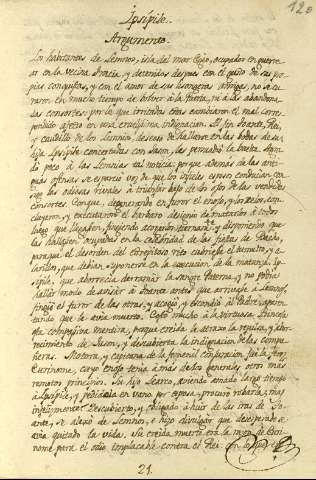 120
Ipsipile.
Argumento.
Los habitantes de Lemnos, isla del mar Egeo, ocupados en guerre-
ar en la vecina Tracia, y detenidos despues con el gusto de sus pro-
pias conquistas, y con el amor de sus lisongeras amigas, no se cu-
raron en mucho tiempo de bolver à la Patria, ni à las abandona-
das consortes: por lo que irritadas estas cambiaron el mal corres-
pondido afecto en una cruelisima indignacion. Al fin Toante, Rei,
y caudillo de los Lemnios, deseoso de hallarse en las bodas de su
hija Ipsipile concertadas con Jason, les persuadió la buelta. Agra-
dó poco à las Lemnias tal noticia; porque además de las anti-
guas ofensas se esparció voz de que los infieles esposos conducian con-
sigo las odiosas rivales à triunfar bajo de los ojos de las vendidas
consortes. Conque, degenerando en furor el enojo, y los zelos, con-
cluyeron, y executaron el barbaro designio de matarlos à todos
luego que llegasen, fingiendo acogerlos tiernam.te y disponiendo que
las hallasen ocupadas en la celebridad de las fiestas de Baco,
porque el desorden del estrepitoso rito cubriese el tumulto, y
los gritos, que debian suponerse en la execucion de la matanza. Ipsi-
pile, que aborrecia derramar la sangre Paterna, y no podia
hallar modo de avisar à Toante antes que arrivase à Lemnos,
fingió el furor de las otras, y acogió, y escondió al Padre, aparen-
tando que le avia muerto. Costó mucho à la virtuosa Princesa
esta compasiva mentira, porque creida la atraxo la repulsa, y abor-
recimiento de Jason, y descubierta la indignacion de las compa-
ñeras. Motora, y capitana de la femenil conjuracion fue la feroz
Eurinome, cuyo enojo tenia à mas de los generales otros mas
remotos principios. Su hijo Learco, aviendo amado largo tiempo
à Ipsipile, y pedidola en vano por esposa, procuró robarla, mas
inutilmente. Descubierto, y obligado à huir de las iras de To-
ante, se alejó de Lemnos, è hizo divulgar que desesperado se
avia quitado la vida. Su creida muerte era la razon de Euri-
nome para el odio implacable contra el Rei
21